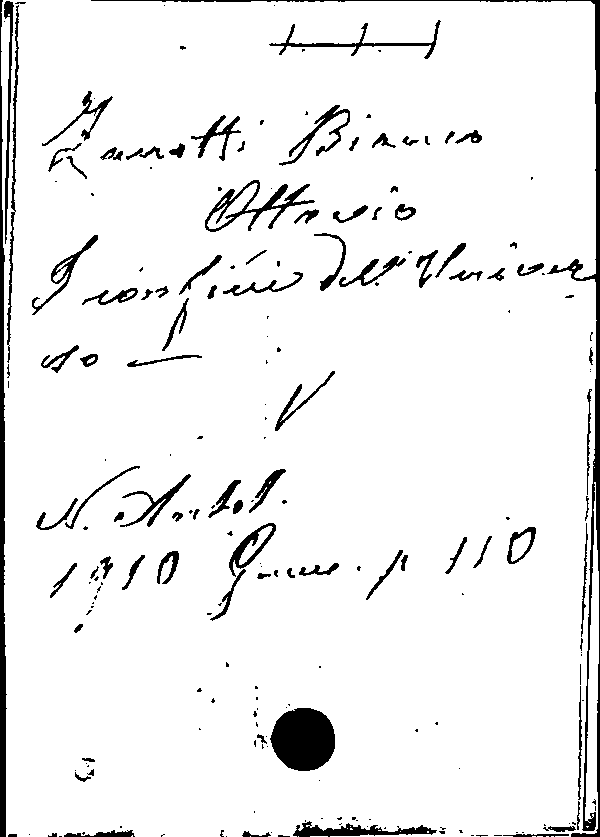 Zanotti Bianco
Ottavio
I confini dell'Univer
so —
V
N. Antol.
1910 Genn. p 110